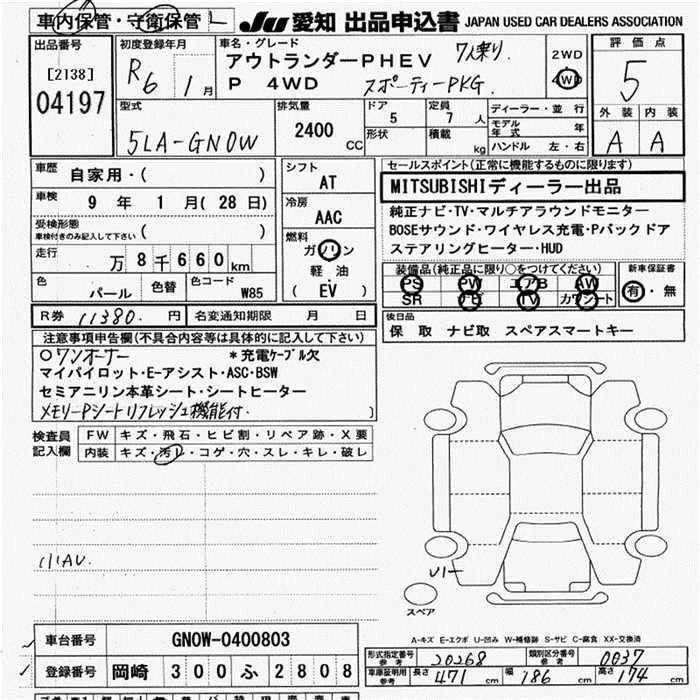 車内保管・守衛保管
JU 愛知 出品申込書 JAPAN USED CAR DEALERS ASSOCIATION
出品番号
[2138]
04197
初度登録年月
R6 1月
車名・グレード
アウトランダーPHEV 7人乗り
P 4WD スポーティーPKG.
2WD
4WD
評価点
5
外装 内装
A A
型式
5LA-GN0W
排気量
2400 CC
ドア
5
定員
7 人
形状
積載
kg
ディーラー・並行
モデル年式 年
ハンドル 左・右
車歴
自家用・( )
車検
9年 1月(28日)
受検形態
車検付きのみ記入して下さい ( )
走行
万8千660km
色
パール
色替
色コード
W85
シフト
AT
冷房
AAC
燃料
ガソリン
軽油
( EV )
セールスポイント(正常に機能するものに限ります)
MITSUBISHIディーラー出品
純正ナビ・TV・マルチアラウンドモニター
BOSEサウンド・ワイヤレス充電・Pバックドア
ステアリングヒーター・HUD
装備品(純正品に限り○をつけてください)
PS PW エアB AW
SR ナビ TV カワシート
新車保証書
有・無
R券 11380. 円
名変通知期限 月 日
後日品
保 取 ナビ取 スペアスマートキー
注意事項申告欄(不具合内容等は具体的に記入して下さい)
○ワンオーナー *充電ケーブル欠
マイパイロット・E-アシスト・ASC・BSW
セミアニリン本革シート・シートヒーター
メモリーPシート リフレッシュ機能付.
検査員記入欄
FW キズ・飛石・ヒビ割・リペア跡・X要
内装 キズ・汚レ・コゲ・穴・スレ・キレ・破レ
小AU.
スペア
A-キズ E-エクボ U-凹み W-補修跡 S-サビ C-腐食 XX-交換済
車台番号 GN0W-0400803
登録番号 岡崎 300 ふ 2808
形式指定番号 参考 20268
類別区分番号 参考 0037
車庫証明用 参考 長さ 471 cm 幅 186 cm 高さ 174 cm